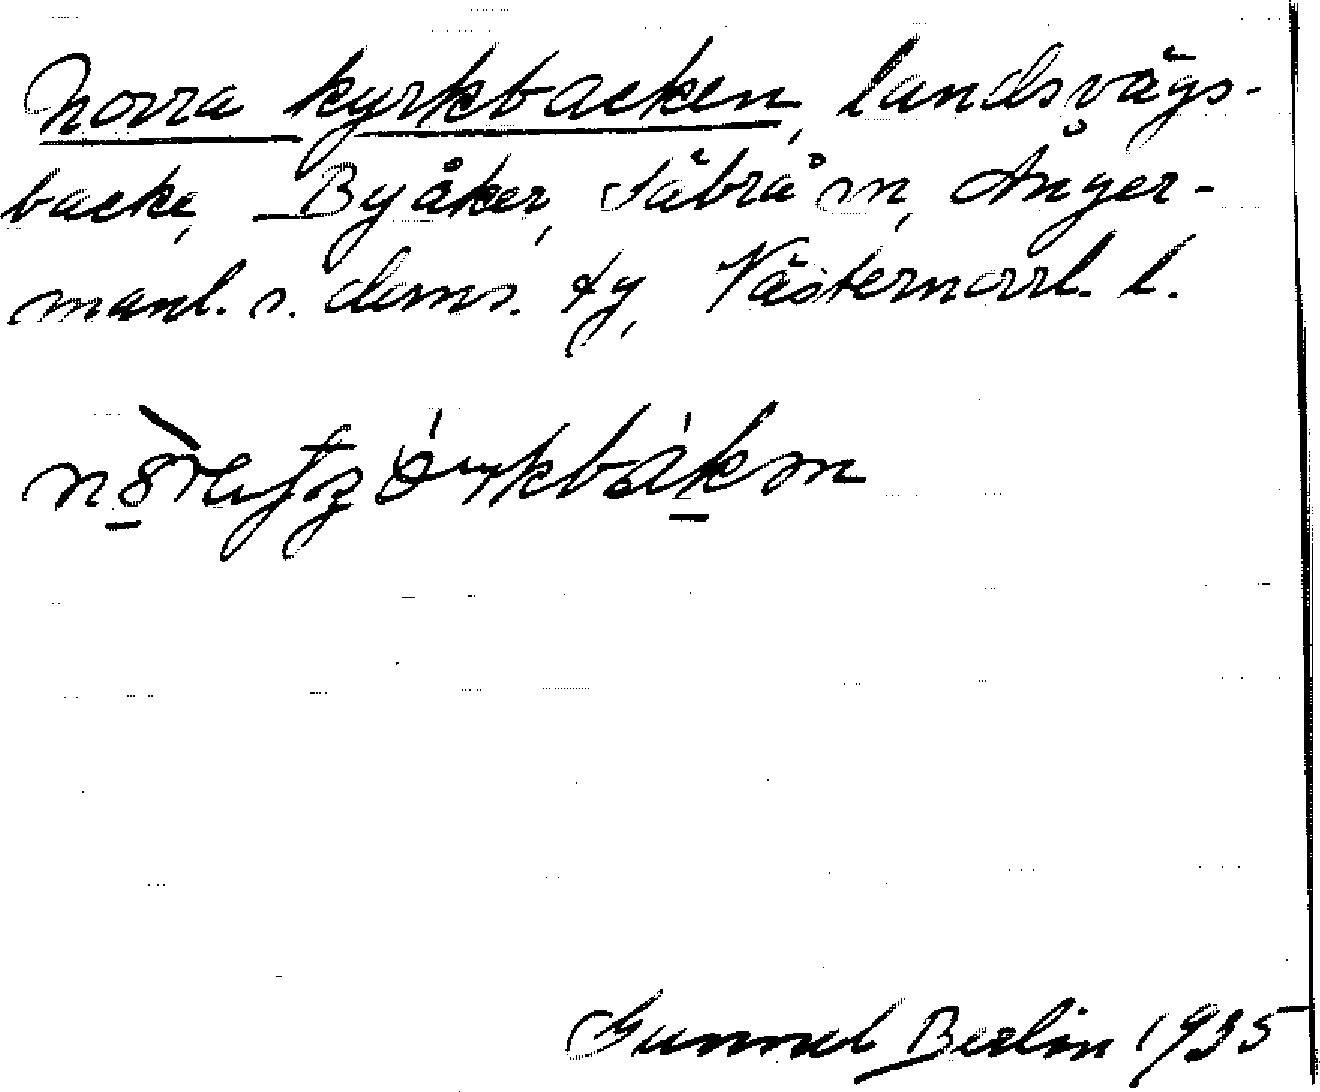 Norra kyrkbacken, landsvägs-
backe, Byåker, Säbrå sn, Anger-
manl. s. doms. ty, Västernorrl. l.
Gunnel Berlin 1935